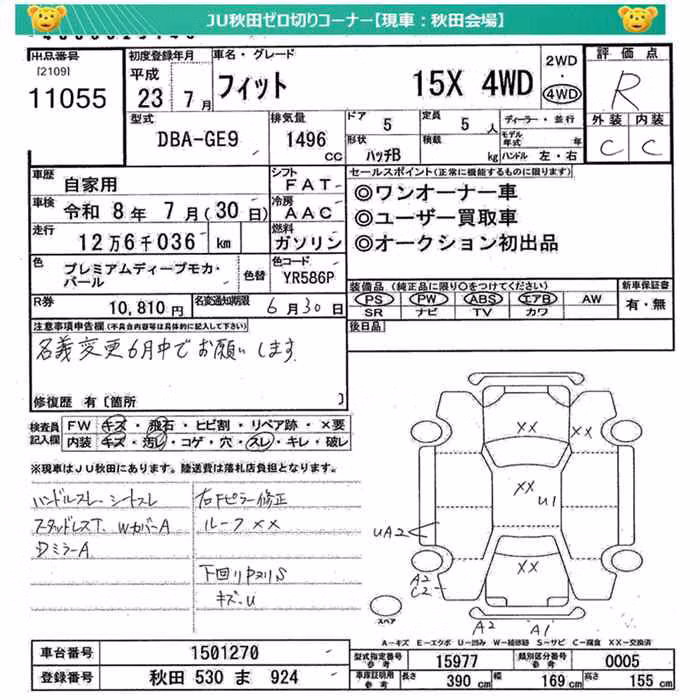 JU秋田ゼロ切りコーナー【現車：秋田会場】
出品番号
[2109]
11055
初度登録年月
平成
23年 7月
車名・グレード
フィット 15X 4WD
2WD
・
4WD
評価点
R
外装 内装
C C
型式
DBA-GE9
排気量
1496
CC
ドア
5
定員
5人
形状
ハッチB
積載
kg
ディーラー・並行
モデル年式 年
ハンドル 左・右
車歴
自家用
シフト
FAT
車検
令和 8年 7月(30日)
冷房
AAC
走行
12万6千036 km
燃料
ガソリン
色
プレミアムディープモカ・パール
色替
色コード
YR586P
R券
10,810円
名変通知期限
6月30日
セールスポイント(正常に機能するものに限ります)
◎ワンオーナー車
◎ユーザー買取車
◎オークション初出品
装備品(純正品に限り○をつけてください)
PS PW ABS エアB AW
SR ナビ TV カワ
新車保証書
有・無
後日品
注意事項申告欄(不具合内容等は具体的に記入して下さい)
名義変更6月中でお願いします
修復歴 有〔箇所 〕
検査員記入欄
FW キズ・飛石・ヒビ割・リペア跡・×要
内装 キズ・汚れ・コゲ・穴・スレ・キレ・破レ
※現車はJU秋田にあります。陸送費は落札店負担となります。
ハンドルスレ、シートスレ
スタッドレスT、WカバーA
DミラーA
右Fピラー修正
ルーフXX
下回りサビS
キズ・U
XX
XX
XX
U1
UA2
XX
A2
C2
A2
A1
スペア
A－キズ E－エクボ U－凹み W－補修跡 S－サビ C－腐食 XX－交換済
車台番号
1501270
登録番号
秋田 530 ま 924
型式指定番号
参考
15977
類別区分番号
参考
0005
車庫証明用
参考
長さ
390 cm
幅
169 cm
高さ
155 cm